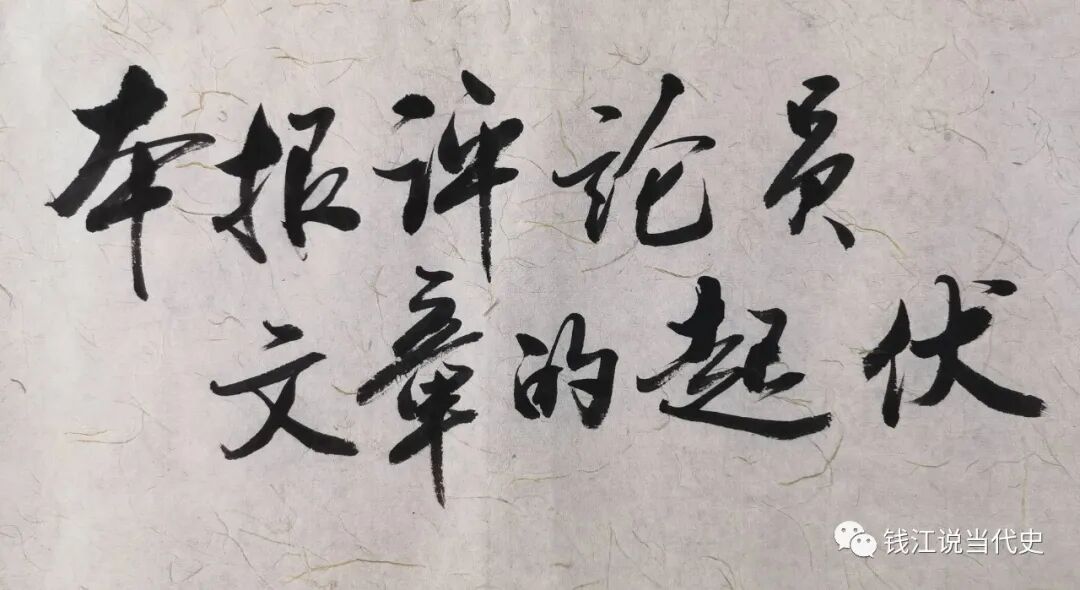 本报评论员
文章的起伏
钱江说当代史